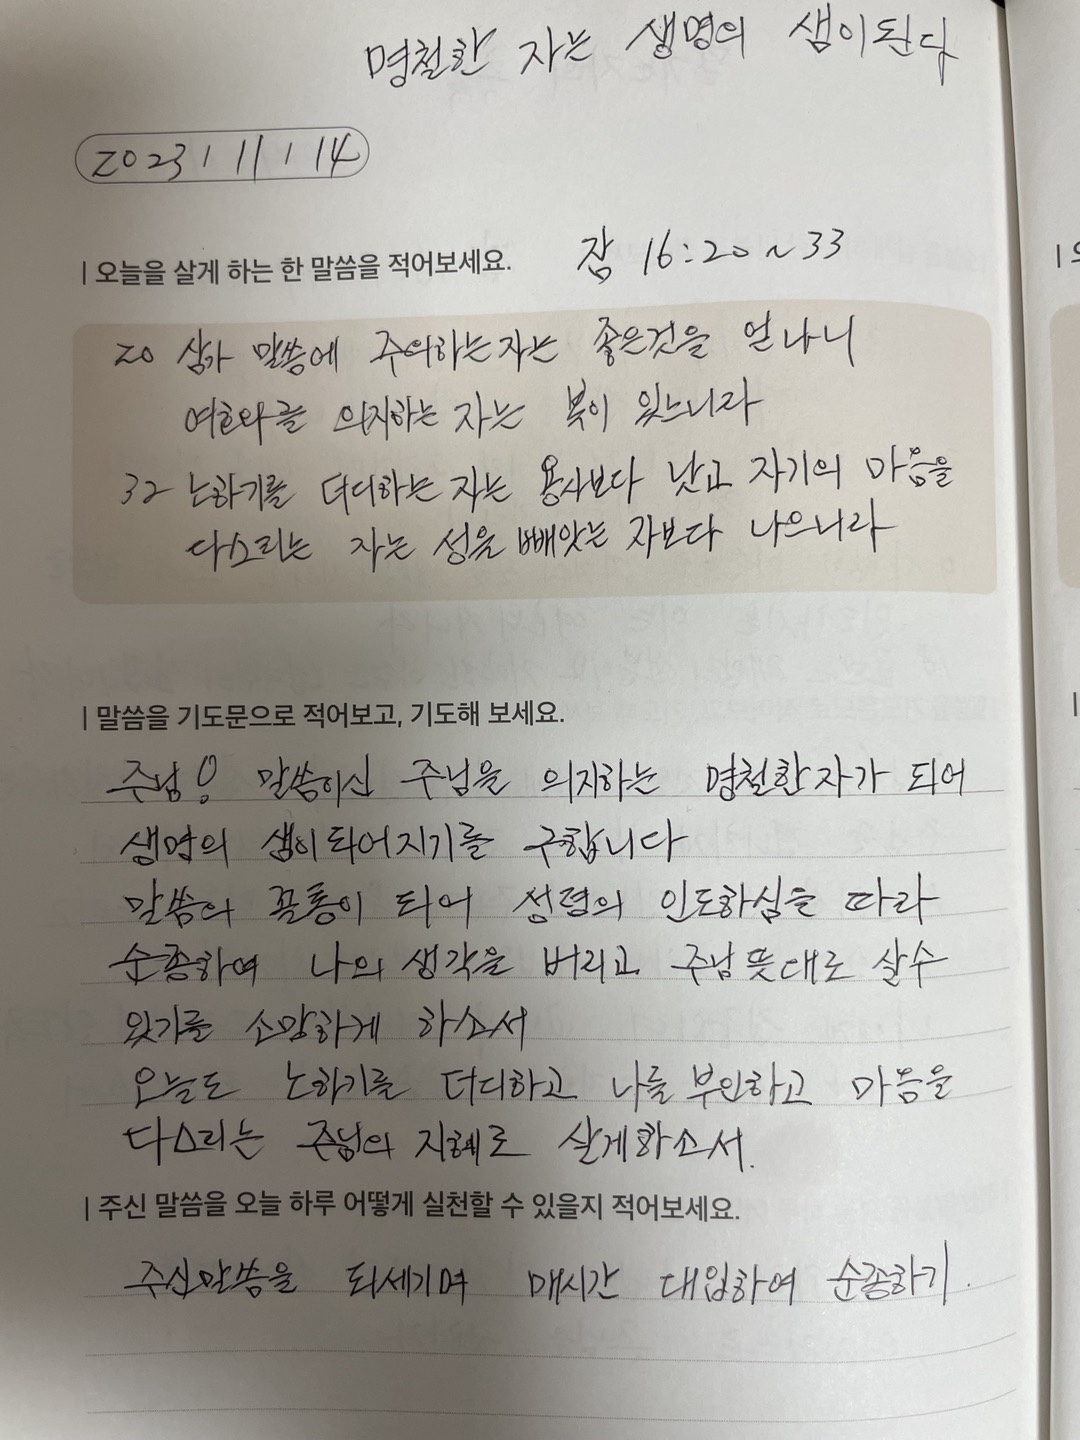 명철한 자는 생명의 샘이된다
2023 / 11 / 14
오늘을 살게 하는 한 말씀을 적어보세요. 잠 16:20~33
20 삼가 말씀에 주의하는자는 좋은것을 얻나니
여호와를 의지하는 자는 복이 있느니라
32 노하기를 더디하는 자는 용사보다 낫고 자기의 마음을
다스리는 자는 성을 빼앗는 자보다 나으니라
말씀을 기도문으로 적어보고, 기도해 보세요.
주님! 말씀이신 주님을 의지하는 명철한자가 되어
생명의 샘이되어지기를 구합니다
말씀의 꼴통이 되어 성령의 인도하심을 따라
순종하여 나의 생각을 버리고 주님뜻대로 살수
있기를 소망하게 하소서
오늘도 노하기를 더디하고 나를 부인하고 마음을
다스리는 주님의 지혜로 살게하소서.
주신 말씀을 오늘 하루 어떻게 실천할 수 있을지 적어보세요.
주신말씀을 되세기며 매시간 대입하여 순종하기.